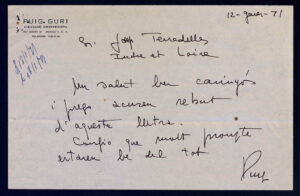 PUIG-GURI
12-gener-71
Sr. Josep Tarradelles
Indre et Loire
Un salut ben carinyós
i prego acuseu rebut
d'aquesta lletra.
Confio que molt prompte
estareu bé del tot
Puig